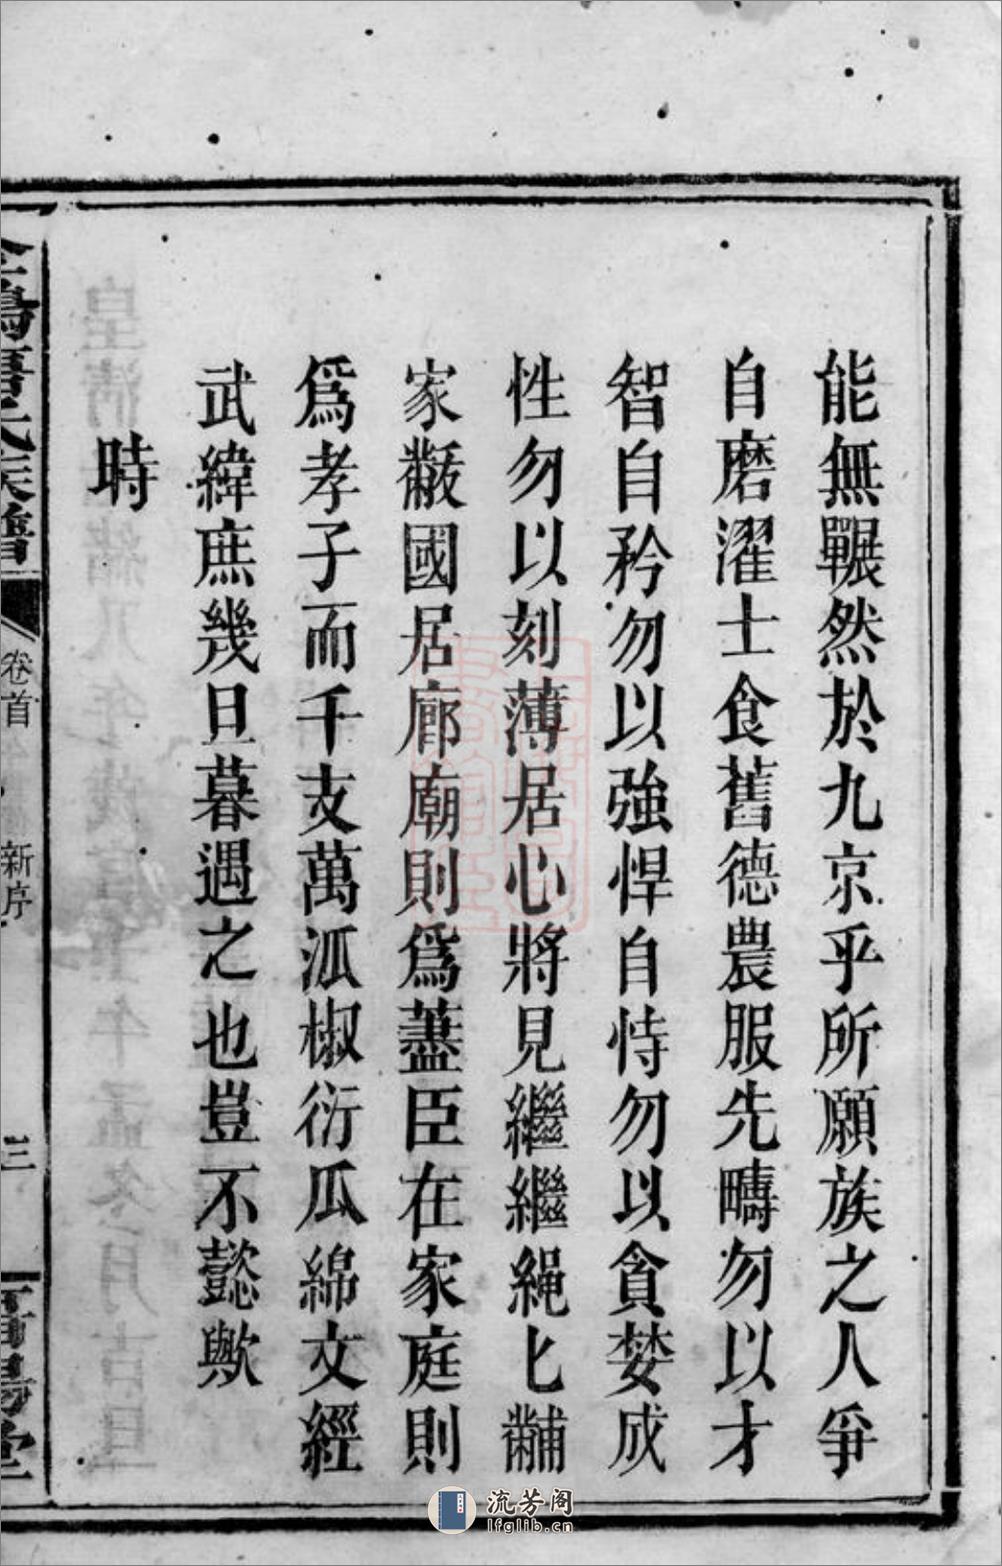 能無囅然於九京乎所願族之人爭
自磨濯士食舊德農服先疇勿以才
智自矜勿以強悍自恃勿以貪婪成
性勿以刻薄居心將見繼繼繩匕黼
家黻國居廊廟則爲藎臣在家庭則
爲孝子而千支萬派椒衍瓜綿文經
武緯庶幾旦暮遇之也豈不懿歟
時
氏族譜
卷首
新序
三
堂
流芳阁
lfglib.cn